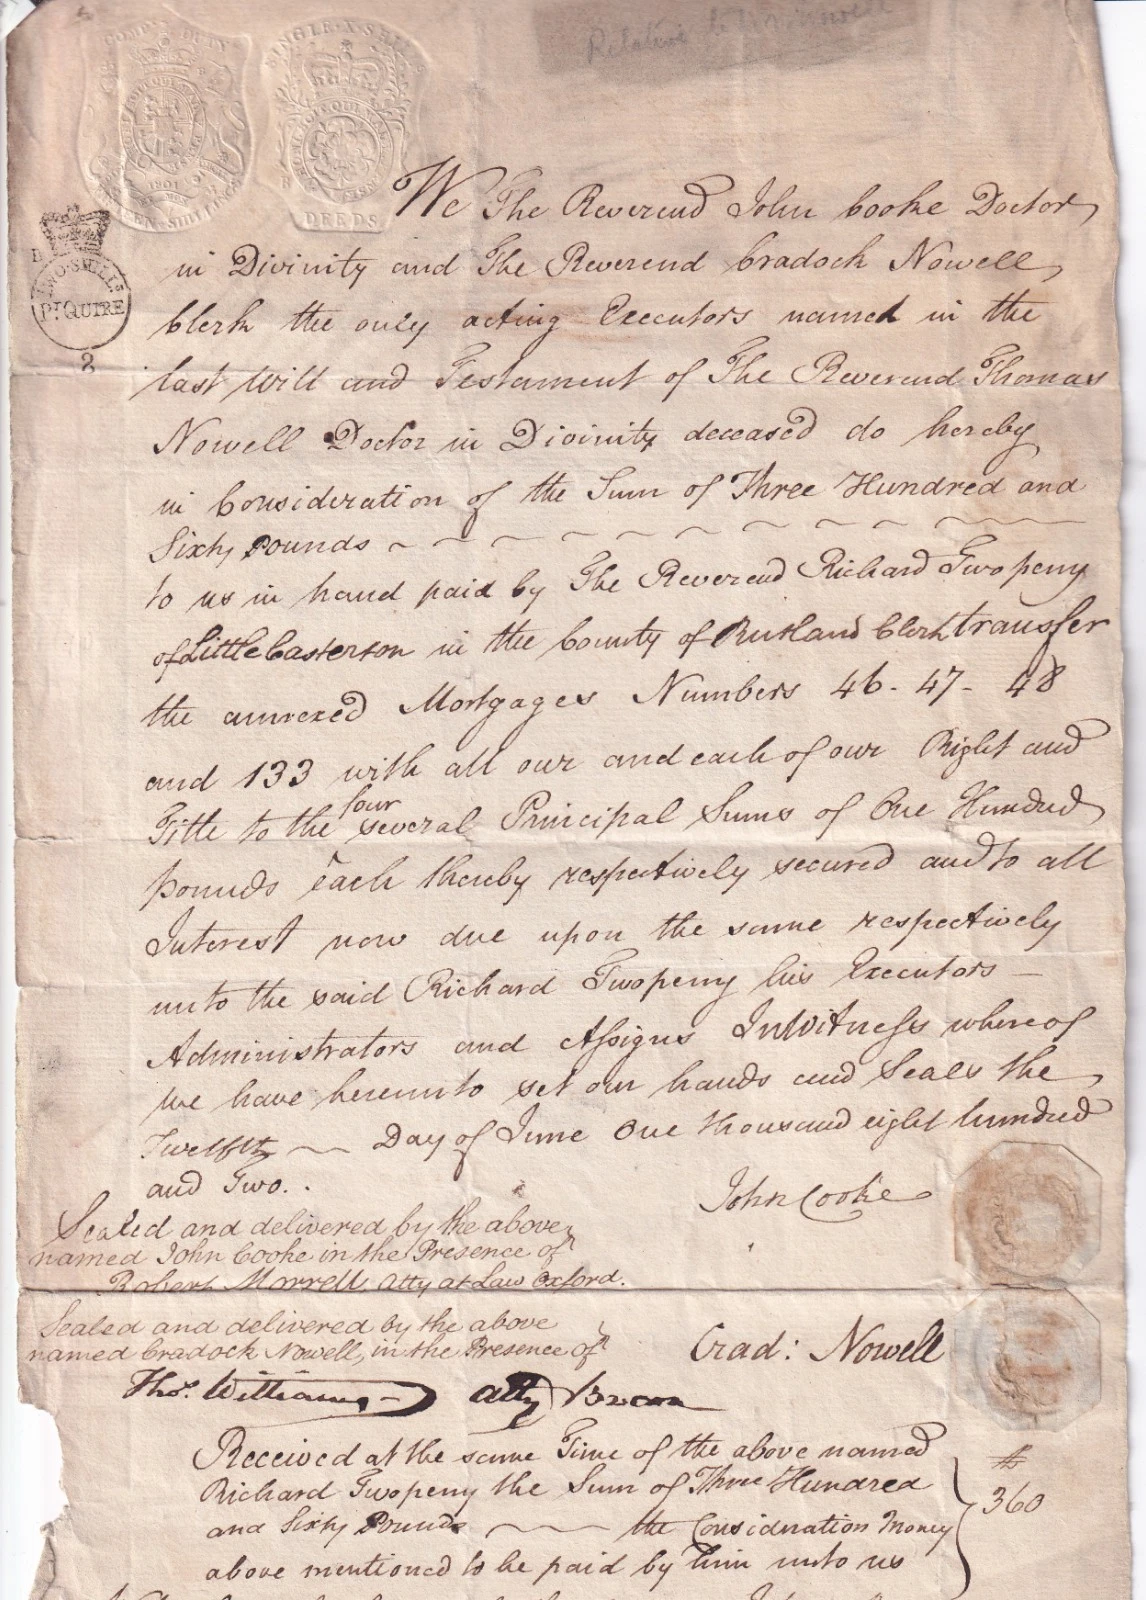 Relative to
COMPN DUTY
SINGLE X SHILL
HONI SOIT QUI MAL Y PENSE
1801
TEN SHILLINGS
DEEDS
TWO SHILLS
Pr QUIRE
2
We The Reverend John Cooke Doctor
in Divinity and The Reverend Cradock Nowell
Clerk the only acting Executors named in the
last Will and Testament of The Reverend Thomas
Nowell Doctor in Divinity deceased do hereby
in Consideration of the Sum of Three Hundred and
Sixty Pounds ~ ~ ~ ~ ~ ~ ~ ~ ~
to us in hand paid by The Reverend Richard Twopeny
of Little Casterton in the County of Rutland Clerk transfer
the annexed Mortgages Numbers 46 - 47 - 48
and 133 with all our and each of our Right and
Title to the four several Principal Sums of One Hundred
pounds each thereby respectively secured and to all
Interest now due upon the same respectively
unto the said Richard Twopeny his Executors —
Administrators and Assigns In Witness whereof
we have hereunto set our hands and Seals the
Twelfth ~ Day of June One thousand eight hundred
and Two. .
John Cooke
Sealed and delivered by the above
named John Cooke in the Presence of
Robert Morrell, Atty at Law Oxford.
Sealed and delivered by the above
named Cradock Nowell, in the Presence of
Crad: Nowell
Thos. Williams — Atty Brecon
Received at the same Time of the above named
Richard Twopeny the Sum of Three Hundred
and Sixty Pounds ~ the Consideration Money
above mentioned to be paid by him unto us
£
360